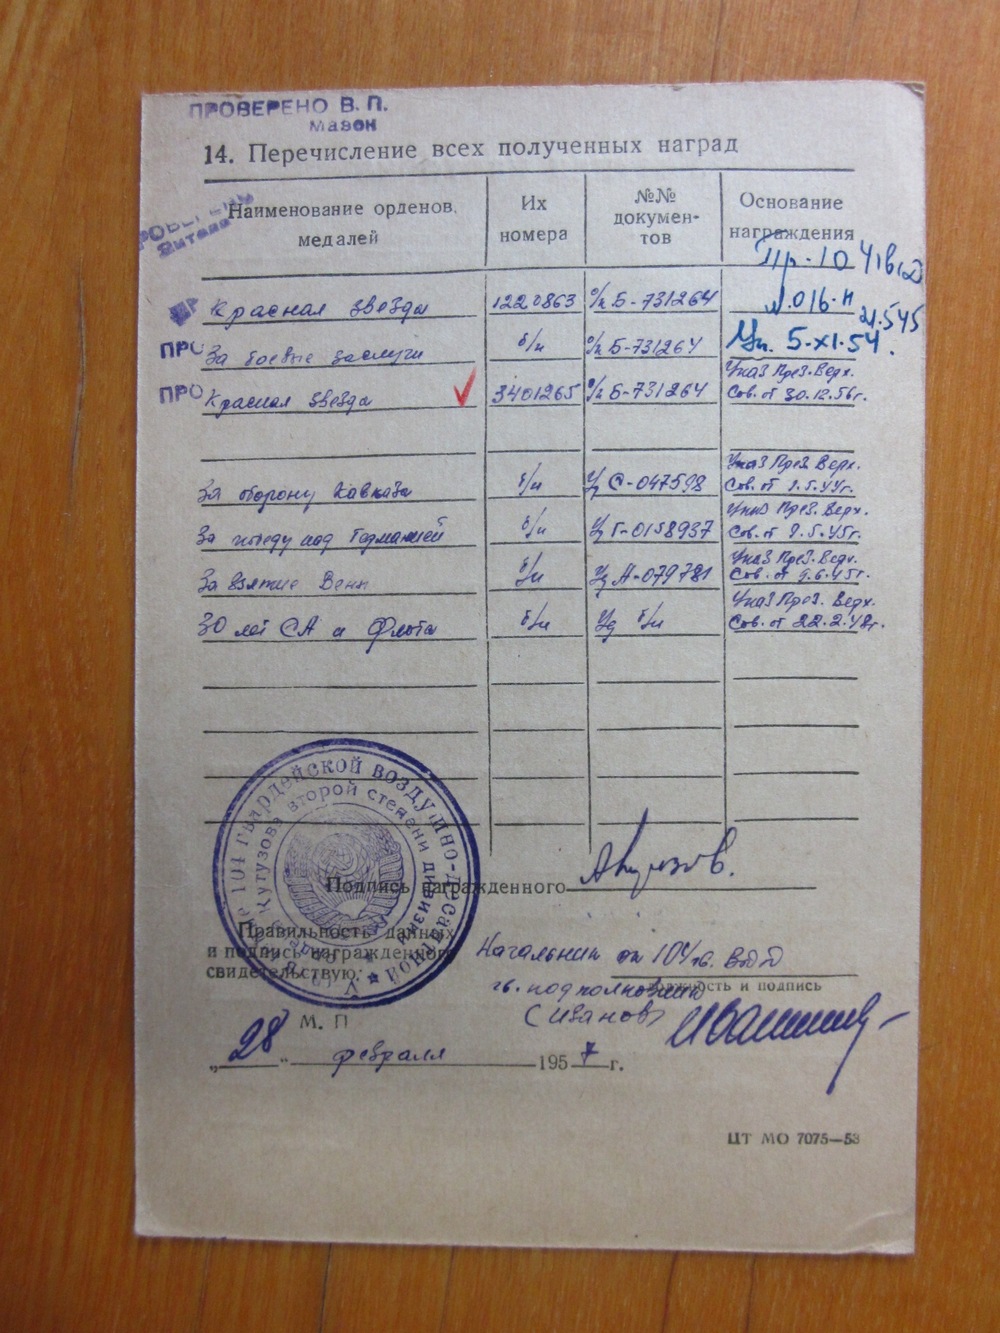 ПРОВЕРЕНО В. П.
мазон
14. Перечисление всех полученных наград
Наименование орденов, медалей
Их номера
№№ документов
Основание награждения
Пр-10
№.016-н
21.5.45
Красная звезда 1220863 о/к Б-731264
За боевые заслуги б/н о/к Б-731264 Ук. 5-XI-54.
Красная звезда 3401265 о/к Б-731264 Указ През. Верх. Сов. от 30.12.56г.
За оборону Кавказа б/н Уд С-047598 Указ През. Верх. Сов. от 1.5.44г.
За победу над Германией б/н Уд Г-0158937 Указ През. Верх. Сов. от 9.5.45г.
За взятие Вены б/н Уд А-079781 Указ През. Верх. Сов. от 9.6.45г.
30 лет СА и Флота б/н Уд б/н Указ През. Верх. Сов. от 22.2.48г.
104 гвардейской воздушно-десантной
Кутузова второй степени дивизии
Подпись награжденного
Правильность данных
и подпись награжденного
свидетельствую:
Начальник 104 гв. ВДД
должность и подпись
гв. подполковник
(Иванов)
М. П
„28“ февраля 1957 г.
ЦТ МО 7075—53